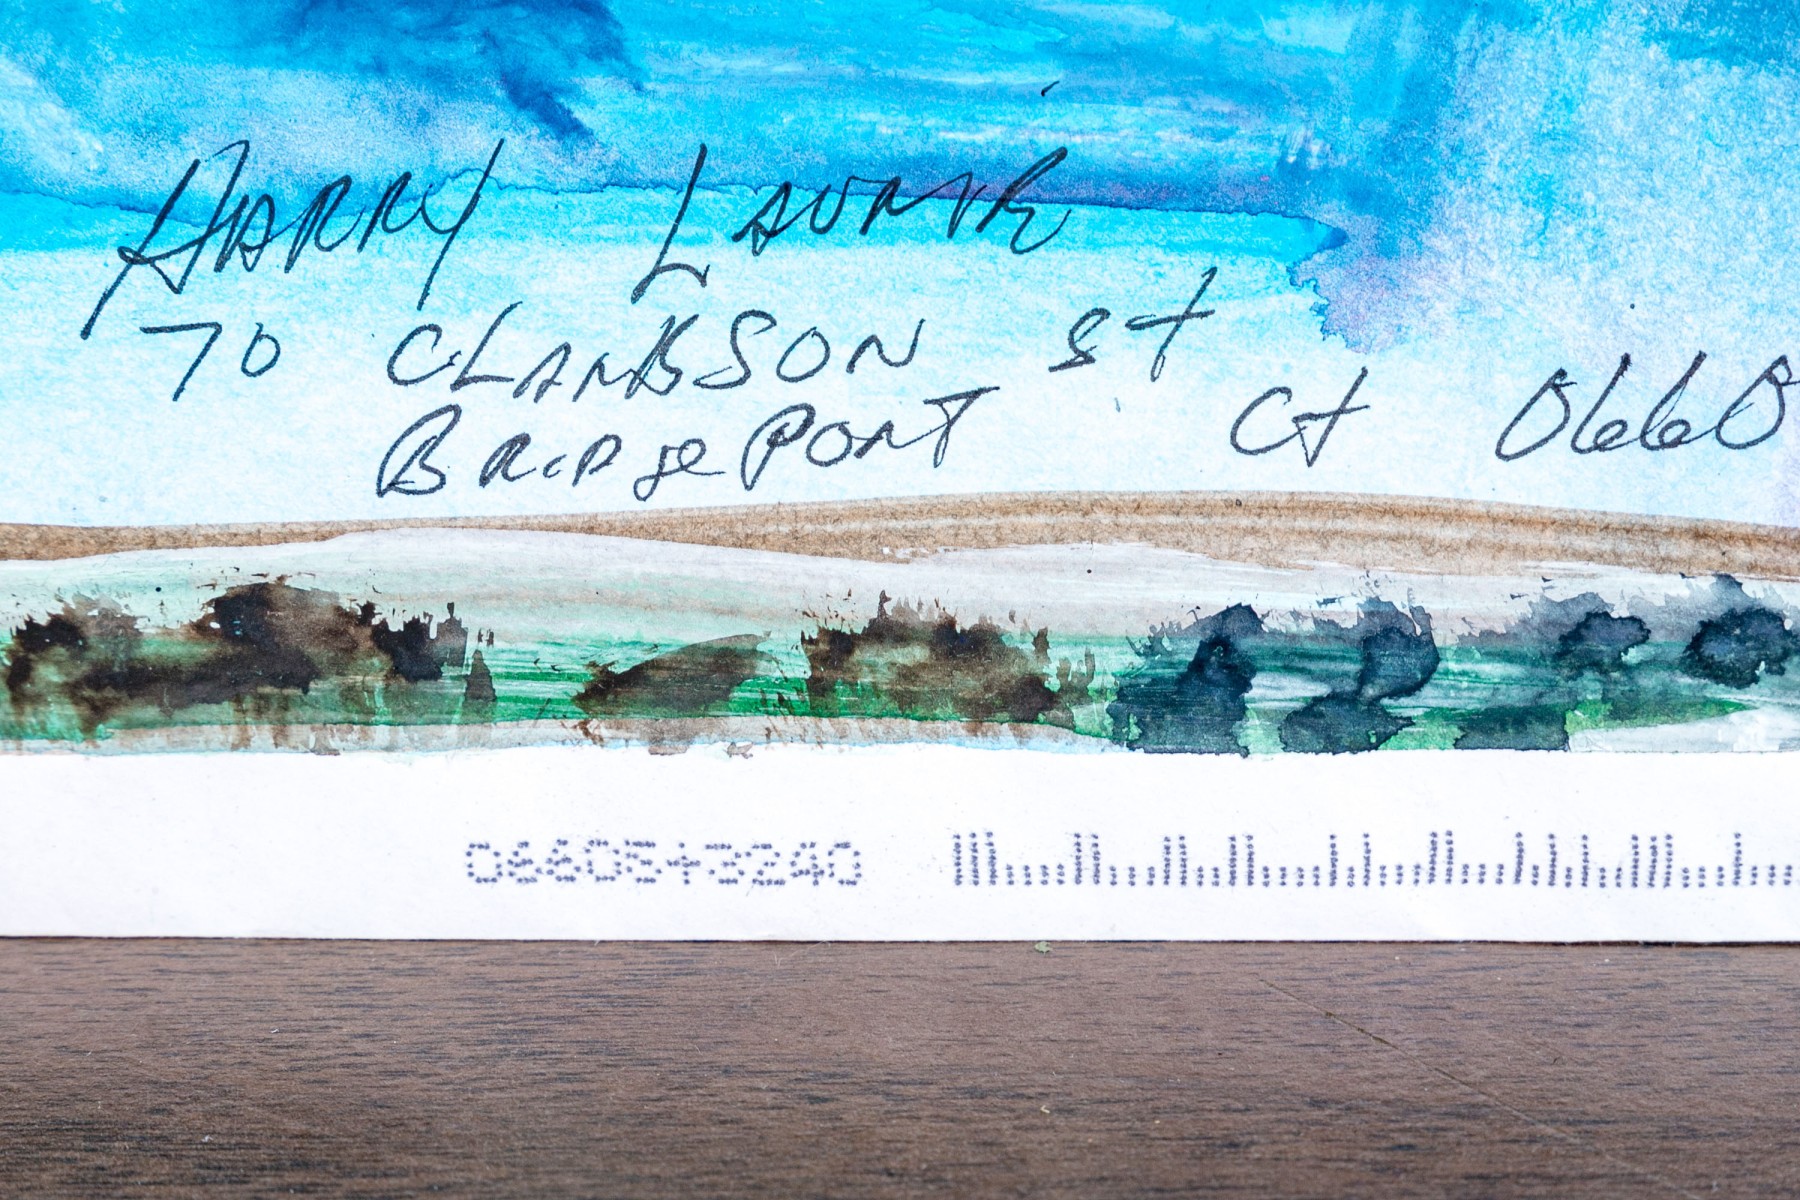 HARRY LAURIE
70 CLARKSON St
BRIDgePORT Ct 0660
06605+3240